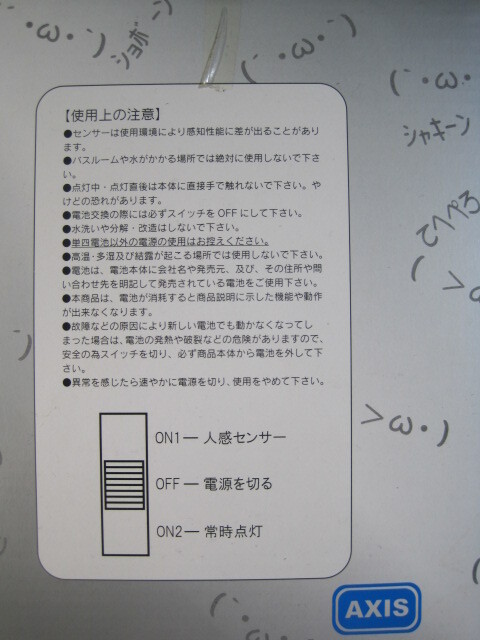 (´・ω・`)
ショボーン
(´・ω・`)
(｀・ω・
シャキーン
てへぺろ
(
>ω
【使用上の注意】
●センサーは使用環境により感知性能に差が出ることがあり
ます。
●バスルームや水がかかる場所では絶対に使用しないで下さ
い。
●点灯中・点灯直後は本体に直接手で触れないで下さい。や
けどの恐れがあります。
●電池交換の際には必ずスイッチを OFF にして下さい。
●水洗いや分解・改造はしないで下さい。
●単四電池以外の電源の使用はお控えください。
●高温・多湿及び結露が起こる場所では使用しないで下さい。
●電池は、電池本体に会社名や発売元、及び、その住所や問
い合わせ先を明記して発売されている電池をご使用下さい。
●本商品は、電池が消耗すると商品説明に示した機能や動作
が出来なくなります。
●故障などの原因により新しい電池でも動かなくなってし
まった場合は、電池の発熱や破裂などの危険がありますので、
安全の為スイッチを切り、必ず商品本体から電池を外して下
さい。
●異常を感じたら速やかに電源を切り、使用をやめて下さい。
>ω・)
ON1 ー 人感センサー
OFF ー 電源を切る
ON2 ー 常時点灯
AXIS